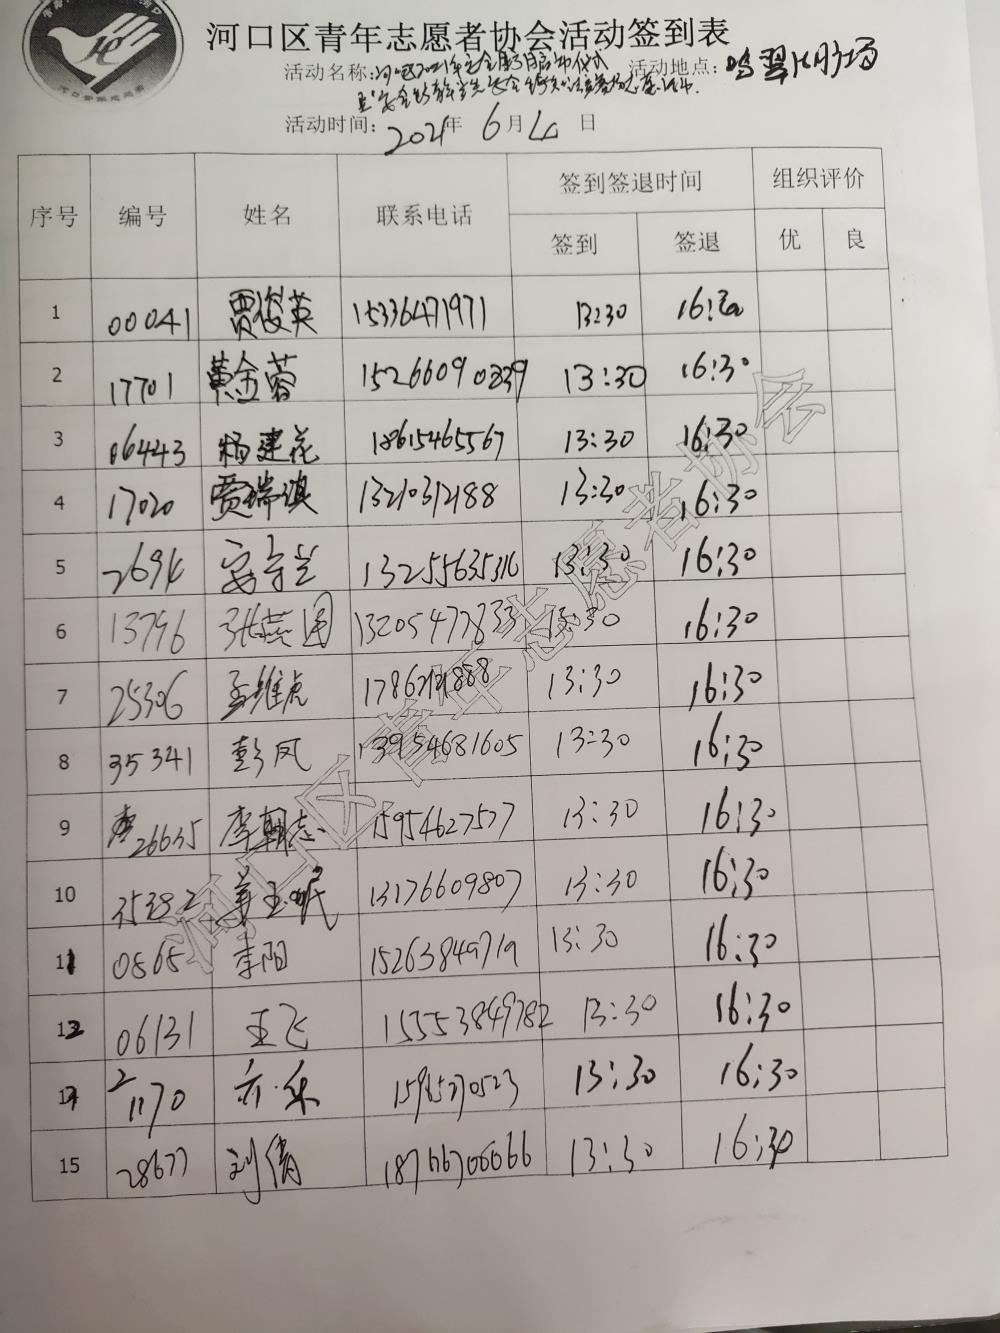 河口区青年志愿者协会活动签到表
活动名称: 活动地点:
活动时间: 2021年 6月4日
序号 编号 姓名 联系电话 签到签退时间 组织评价
签到 签退 优 良
1 00041 贾俊英 15336471971 13:30 16:30
2 17701 黄金蓉 15266090339 13:30 16:30
3 06443 杨建花 18615465567 13:30 16:30
4 17020 贾瑞滨 13210312188 13:30 16:30
5 2694 安守兰 13255635316 13:30 16:30
6 13796 张燕 13205477833 13:30 16:30
7 25306 孟维虎 13:30 16:30
8 35341 彭凤 13954681605 13:30 16:30
9 26635 李朝志 15954627577 13:30 16:30
10 35382 13176609807 13:30 16:30
11 0565 李阳 15263849719 13:30 16:30
12 06131 王飞 15553849782 13:30 16:30
21170 13:30 16:30
15 28677 刘倩 18766706066 13:30 16:30
河口区青年志愿者协会